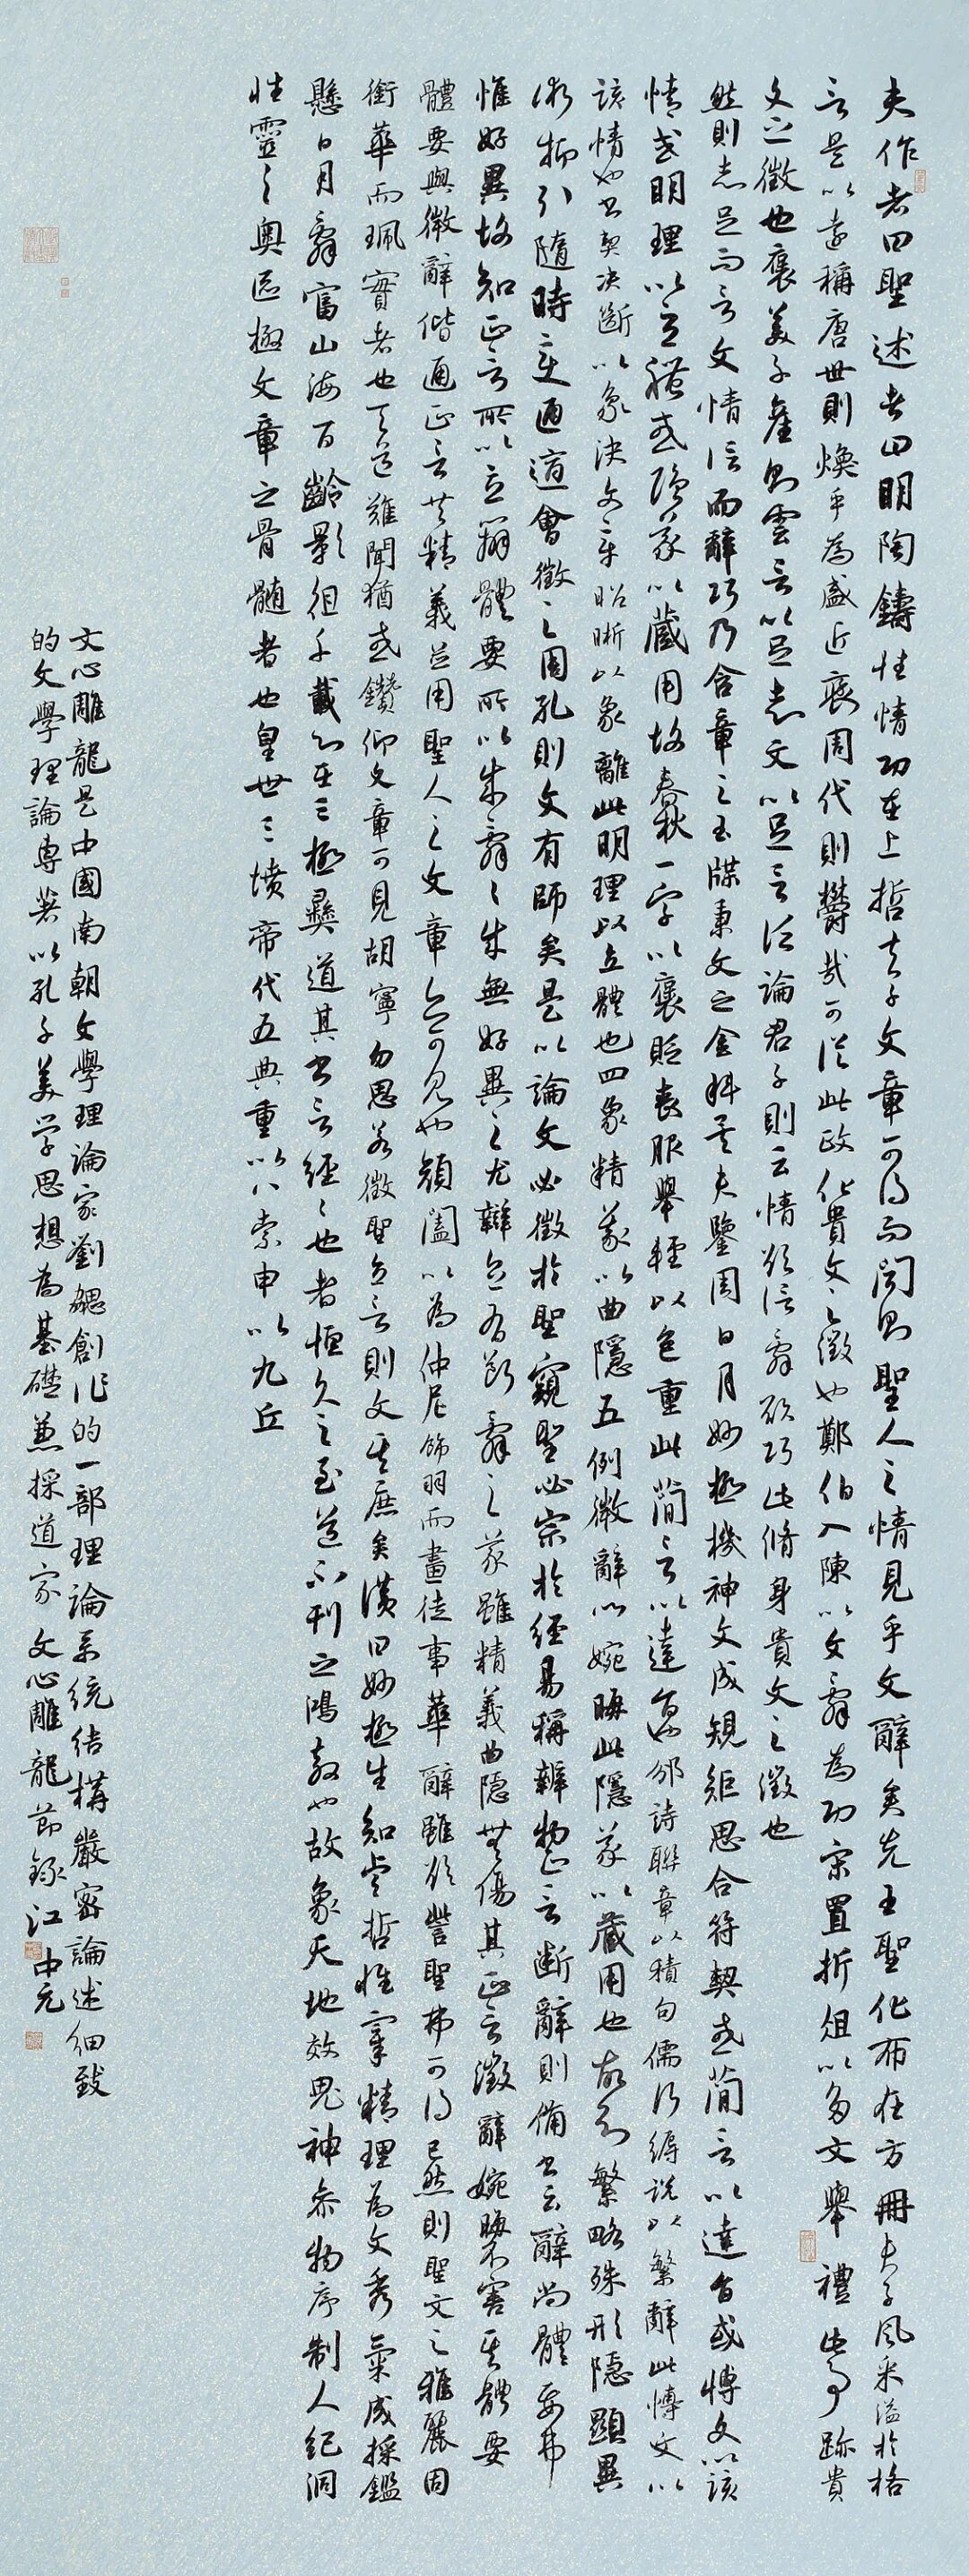 夫作者曰聖述者曰明陶鑄性情功在上哲夫子文章可得而聞則聖人之情見乎文辭矣先王聖化布在方冊夫子風采溢於格
言是以遠稱唐世則煥乎為盛近褒周代則鬱哉可從此政化貴文之徵也鄭伯入陳以文辭為功宋置折俎以多文舉禮此事跡貴
文之徵也褒美子產則雲言以足志文以足言泛論君子則云情欲信辭欲巧此脩身貴文之徵也
然則志足而言文情信而辭巧乃含章之玉牒秉文之金科矣夫鑒周日月妙極機神文成規矩思合符契或簡言以達旨或博文以該
情或明理以立體或隱義以藏用故春秋一字以褒貶喪服舉輕以包重此簡言以達旨也邠詩聯章以積句儒行縟說以繁辭此博文以
該情也書契決斷以象決文章昭晰以象離此明理以立體也四象精義以曲隱五例微辭以婉晦此隱義以藏用也故知繁略殊形隱顯異
術抑引隨時變通適會徵之周孔則文有師矣是以論文必徵於聖窺聖必宗於經易稱辨物正言斷辭則備書云辭尚體要弗
惟好異故知正言所以立辯體要所以成辭辭成無好異之尤辯立有斷辭之義雖精義曲隱無傷其正言微辭婉晦不害其體要
體要與微辭偕通正言共精義並用聖人之文章亦可見也顏闔以為仲尼飾羽而畫徒事華辭雖欲訾聖弗可得已然則聖文之雅麗固
銜華而珮實者也天道難聞猶或鑽仰文章可見胡寧勿思若徵聖立言則文其庶矣讚曰妙極生知睿哲惟宰精理為文秀氣成採鑑
懸日月辭富山海百齡影徂千載心在三極彝道其書言經經也者恒久之至道不刊之鴻教也故象天地效鬼神參物序制人紀洞
性靈之奧區極文章之骨髓者也皇世三墳帝代五典重以八索申以九丘
文心雕龍是中國南朝文學理論家劉勰創作的一部理論系統結構嚴密論述細致
的文學理論專著以孔子美学思想為基礎兼採道家 文心雕龍節錄江中元